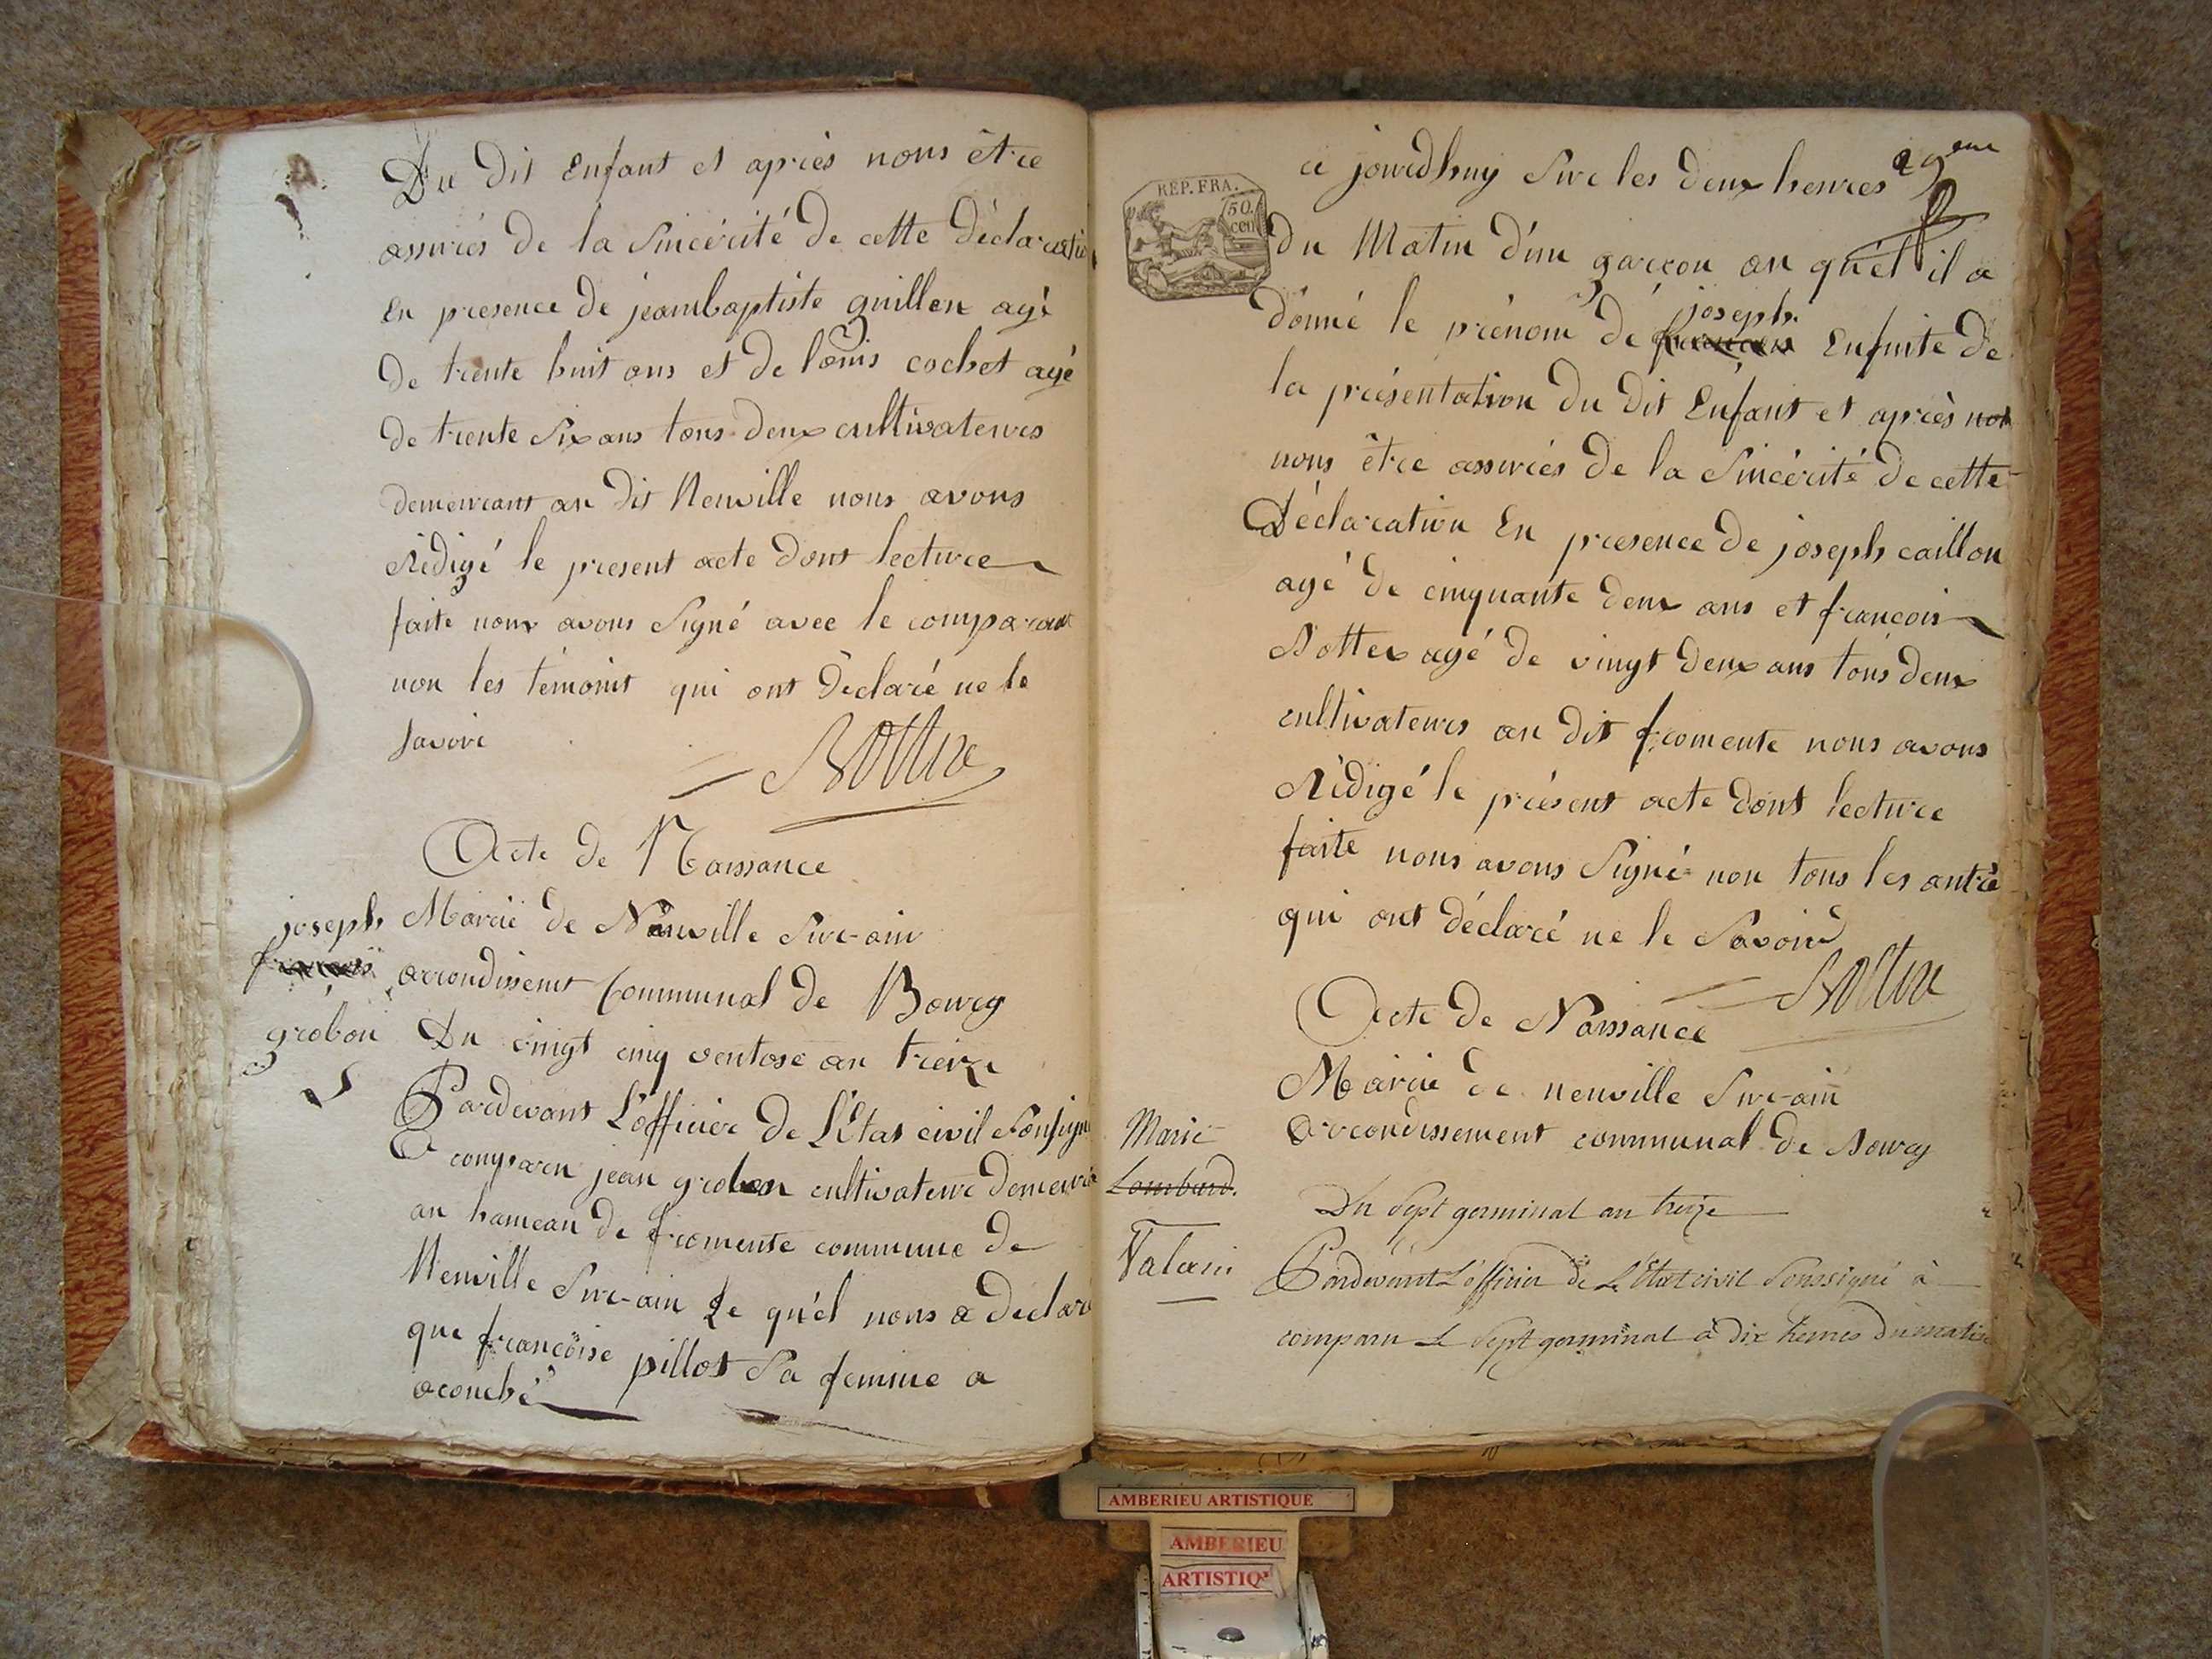 Du dit Enfant et aprés nous être
assurés de la Sincérité de cette déclaration
En presence de jeanbaptiste guillen agé
de trente huit ans et de louis cochet agé
de trente Six ans tous deux cultivateurs
demeurant au dit Neuville nous avons
Rédigé le present acte dont lecture
faite nous avons Signé avec le comparant
non les témoins qui ont déclaré ne le
Savoir
Acte de Naissance
joseph
françois
grobon
Mairie de Neuville Sur-ain
arrondissemt Communal de Bourg
Du vingt cinq ventose an treize
Pardevant L'officier de L'Etat civil Sousigné
a comparu jean grobon cultivateur demeurant
au hameau de fromente commune de
Neuville Sur-ain Le quel nous a déclaré
que françoise pillot Sa femme a
acouché
29eme
REP. FRA.
50. cen
ce jourdhuy Sur les deux heures
du Matin d'un garçon au quel il a
donné le prénom de joseph Ensuite de
la présentation du dit Enfant et aprés
nous être assurés de la Sincérité de cette
Déclaration En presence de joseph caillon
agé de cinquante deux ans et françois
Bottex agé de vingt deux ans tous deux
cultivateurs au dit fromente nous avons
Rédigé le présent acte dont lecture
faite nous avons Signé non tous les autre
qui ont déclaré ne le Savoir
Acte de Naissance
Mairie de neuville Sur-ain
Arrondissement communal de Bourg
Marie
Lombard.
Valerin
Du Sept germinal an treize
Pardevant L'officier de L'Etat civil Soussigné à
comparu Le Sept germinal à dix heures du matin
AMBERIEU ARTISTIQUE
AMBERIEU
ARTISTIQ